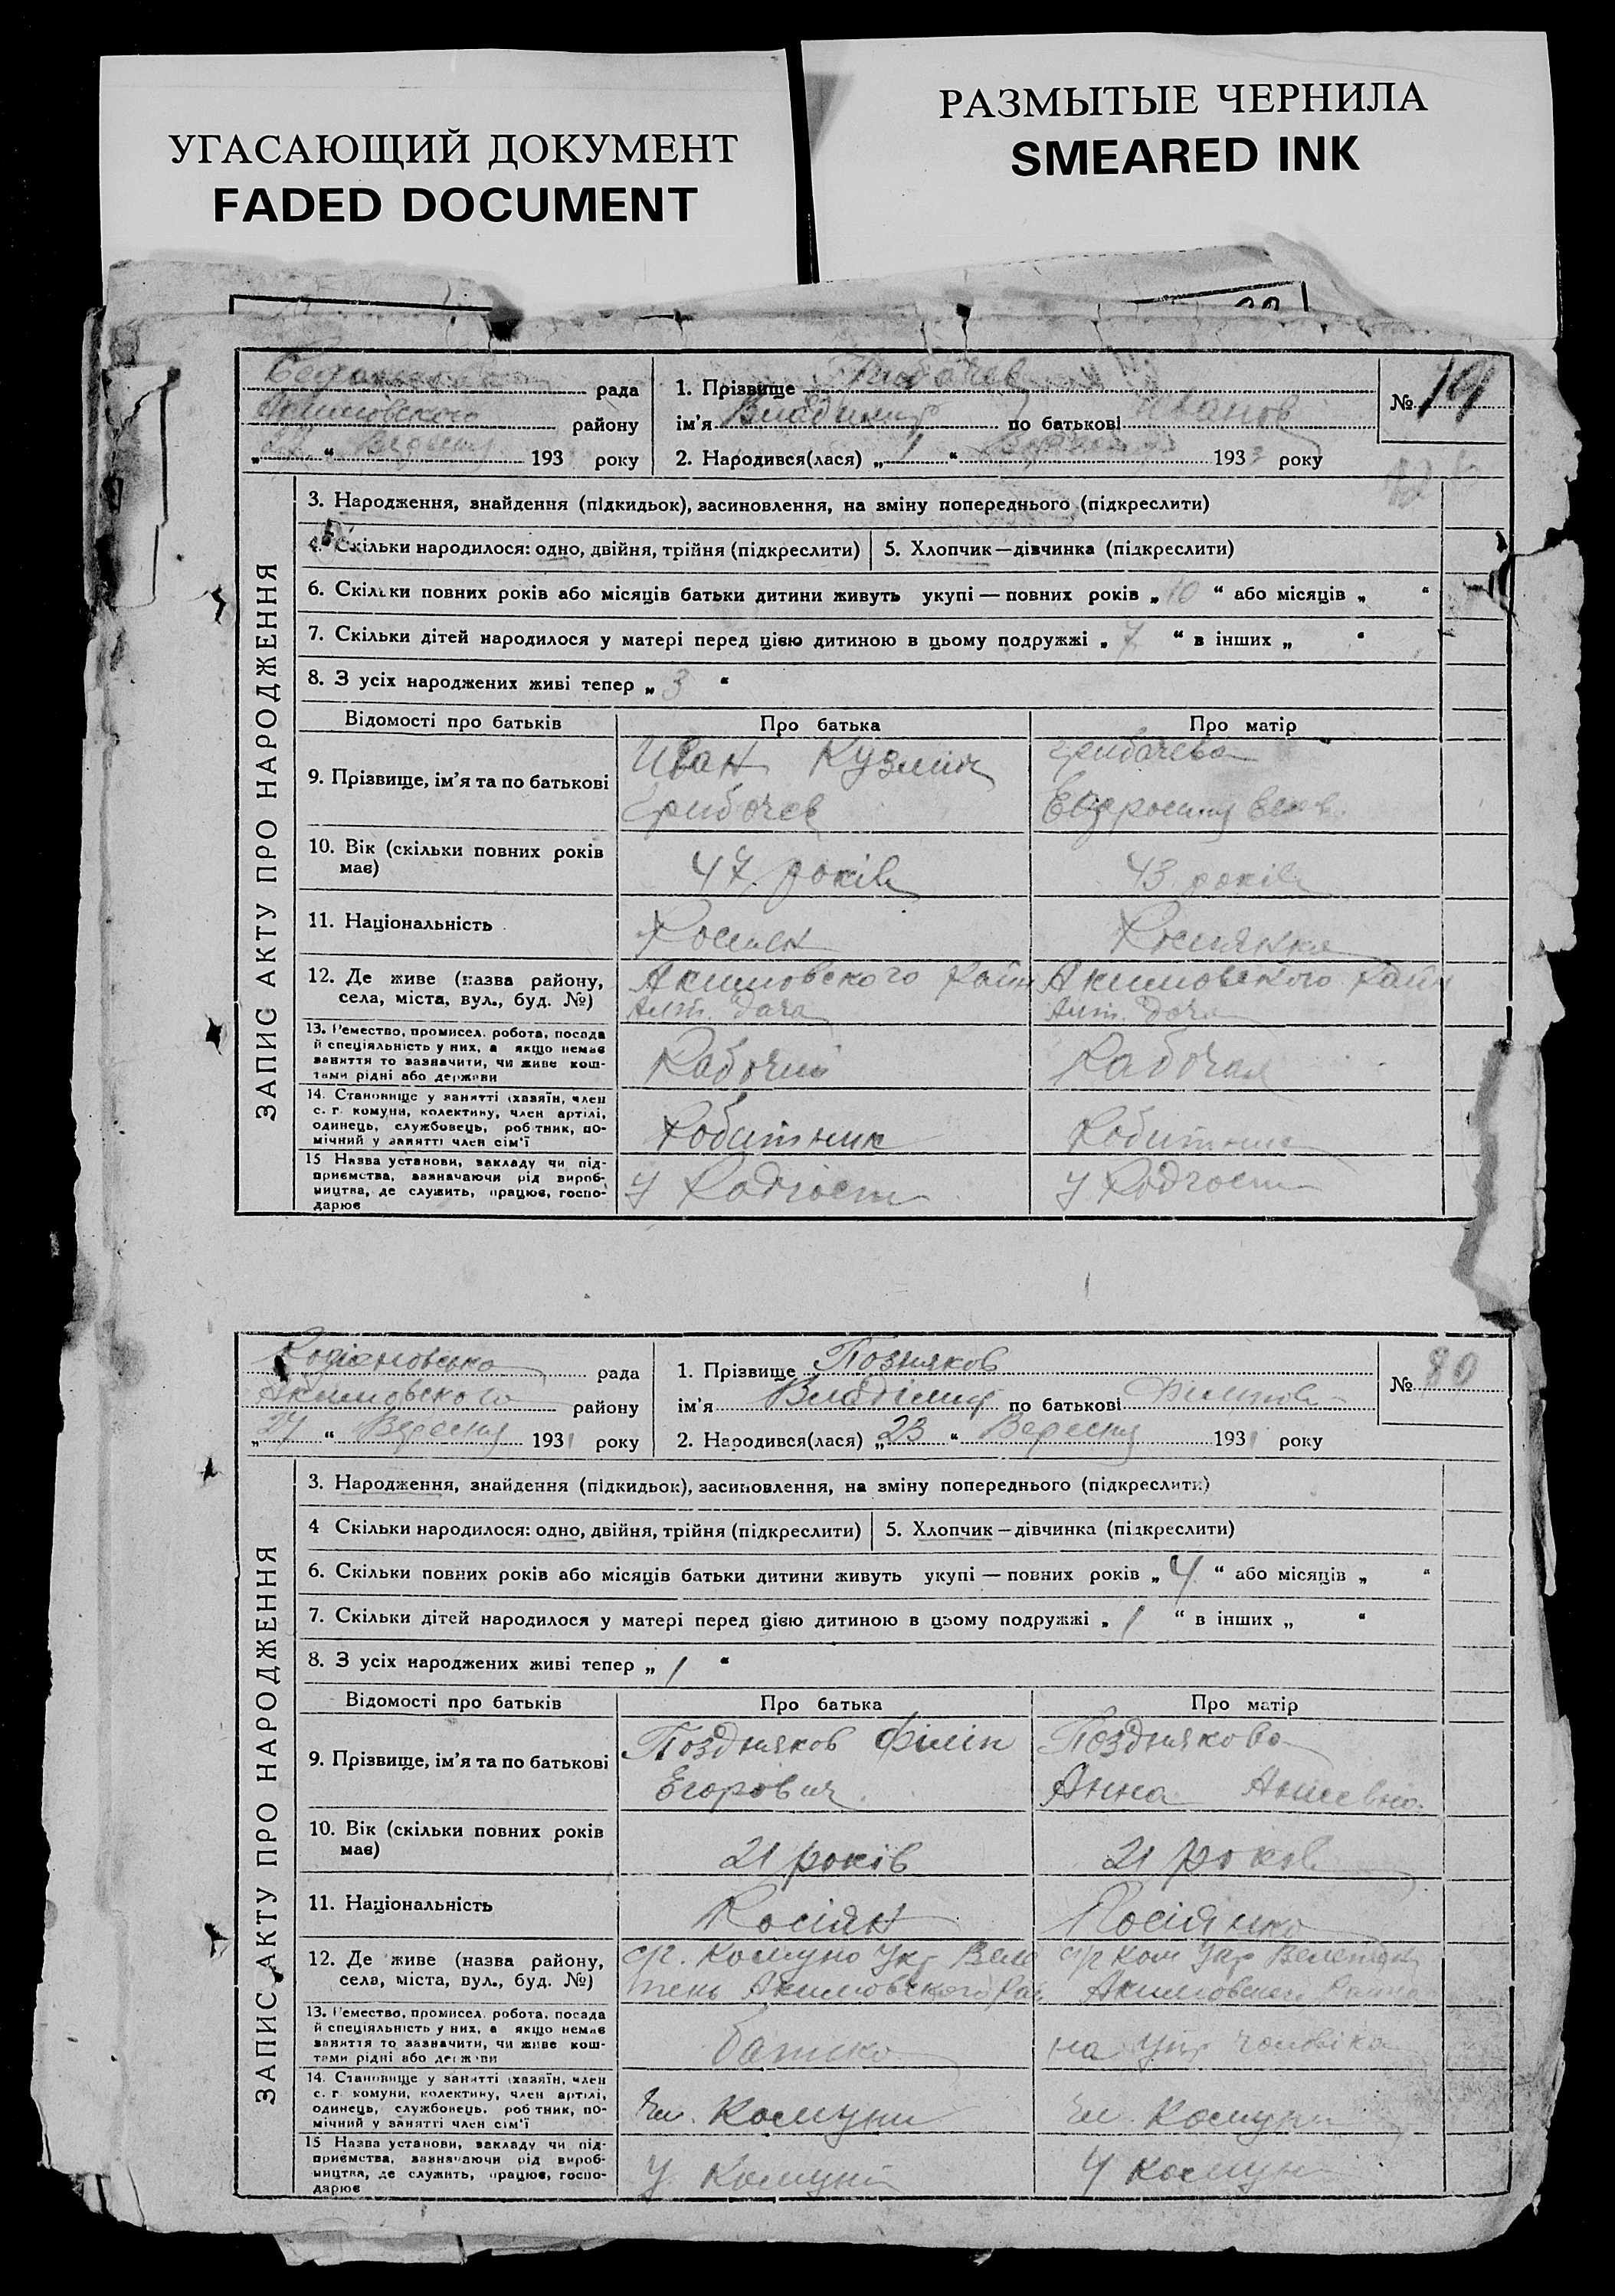 УГАСАЮЩИЙ ДОКУМЕНТ
FADED DOCUMENT
РАЗМЫТЫЕ ЧЕРНИЛА
SMEARED INK
рада
Акимовского району
193 року
1. Прізвище
№ 79
ім'я Владимир по батькові Иванов
2. Народився(лася) „ 1 “ 193 року
ЗАПИС АКТУ ПРО НАРОДЖЕННЯ
3. Народження, знайдення (підкидьок), засиновлення, на зміну попереднього (підкреслити)
4. Скільки народилося: одно, двійня, трійня (підкреслити)
5. Хлопчик — дівчинка (підкреслити)
6. Скільки повних років або місяців батьки дитини живуть укупі — повних років „ 10 “ або місяців „ “
7. Скільки дітей народилося у матері перед цією дитиною в цьому подружжі „ 7 “ в інших „ “
8. З усіх народжених живі тепер „ 3 “
Відомості про батьків Про батька Про матір
9. Прізвище, ім'я та по батькові
Иван Кузмич
Грибочев
Грибачева
10. Вік (скільки повних років має)
47 років
43 років
11. Національність
Росиян
Росиянка
12. Де живе (назва району, села, міста, вул., буд. №)
Акимовского Район
дача
Акимовского Район
дача
13. Ремество, промисел, робота, посада
й спеціяльність у них, а якщо немає
заняття то зазначити, чи живе кош-
тами рідні або держави
Рабочий
Рабочая
14. Становище у занятті (хазяїн, член
с. г. комуни, колективу, член артілі,
одинець, службовець, робітник, по-
мічний у занятті член сім'ї
Робитник
Робитник
15 Назва установи, закладу чи під-
приємства, зазначаючи рід вироб-
ництва, де служить, працює, госпо-
дарює
У Радгоспи
У Радгоспи
Родіоновська рада
Акимовского району
„ 27 “ Вересня 1931 року
1. Прізвище Позняков
№ 80
ім'я Владімир по батькові Філипов
2. Народився(лася) „ 23 “ Вересня 1931 року
ЗАПИС АКТУ ПРО НАРОДЖЕННЯ
3. Народження, знайдення (підкидьок), засиновлення, на зміну попереднього (підкреслити)
4 Скільки народилося: одно, двійня, трійня (підкреслити)
5. Хлопчик — дівчинка (підкреслити)
6. Скільки повних років або місяців батьки дитини живуть укупі — повних років „ 4 “ або місяців „ “
7. Скільки дітей народилося у матері перед цією дитиною в цьому подружжі „ 1 “ в інших „ “
8. З усіх народжених живі тепер „ 1 “
Відомості про батьків Про батька Про матір
9. Прізвище, ім'я та по батькові
Поздняков Філіп
Егорович
Позднякова
Анна
10. Вік (скільки повних років має)
21 років
21 років
11. Національність
Росіян
Росіянка
12. Де живе (назва району, села, міста, вул., буд. №)
с/г. Комуно Укр Веле
тень Акимовского Рай
с/г Ком Укр Велетень
Акимовского Района
13. Ремество, промисел, робота, посада
й спеціяльність у них, а якщо немає
заняття то зазначити, чи живе кош-
тами рідні або держави
батько
на чоловіка
14. Становище у занятті (хазяїн, член
с. г. комуни, колективу, член артілі,
одинець, службовець, робітник, по-
мічний у занятті член сім'ї
Чл. Комуни
Чл. Комуни
15 Назва установи, закладу чи під-
приємства, зазначаючи рід вироб-
ництва, де служить, працює, госпо-
дарює
У Комуні
У Комуні